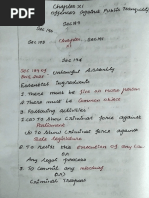 Chapter XI
Offences Against Public Tranquility
Sec 189
Sec 190
Sec 195 Chapter XI Sec 192
Sec 194
Sec 189 of BNS 2023 Unlawful Assembly
Essential Ingredients
1. There must be five or more person
2. There must be Common Object
3. Following activities
1. (a) To Show Criminal force Against Public Servent
(b) To Show Criminal force Against State legislature
2. To Resist the execution of any Law
OR
Any Legal process
3. To Commit any mischief
OR
Criminal Trespass